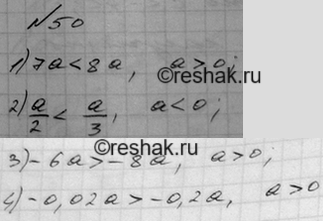 №50
1) 7a < 8a, a > 0;
2) a/2 < a/3, a < 0;
3) -6a > -8a, a > 0;
4) -0,02a > -0,2a, a > 0
Reshak.ru